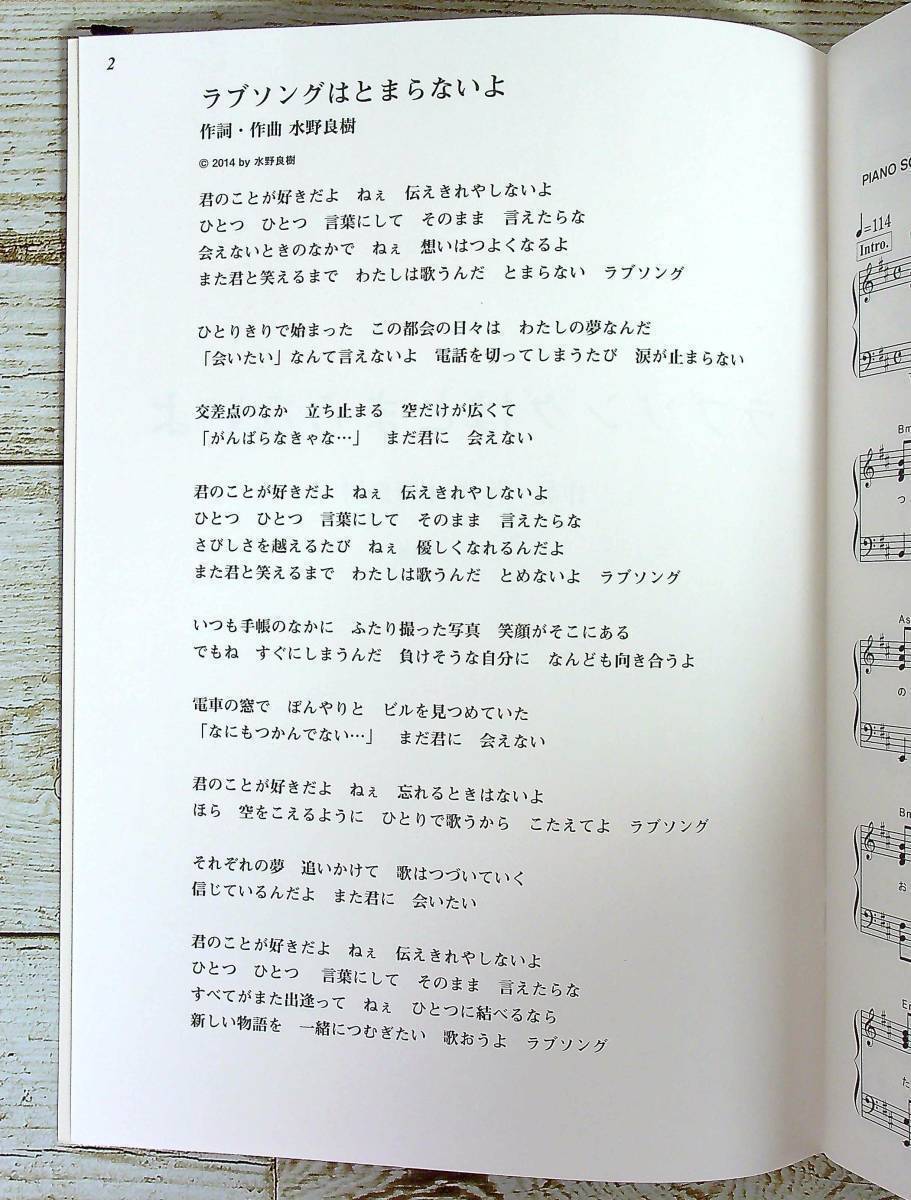 2
ラブソングはとまらないよ
作詞・作曲 水野良樹
© 2014 by 水野良樹
君のことが好きだよ　ねぇ　伝えきれやしないよ
ひとつ　ひとつ　言葉にして　そのまま　言えたらな
会えないときのなかで　ねぇ　想いはつよくなるよ
また君と笑えるまで　わたしは歌うんだ　とまらない　ラブソング
ひとりきりで始まった　この都会の日々は　わたしの夢なんだ
「会いたい」なんて言えないよ　電話を切ってしまうたび　涙が止まらない
交差点のなか　立ち止まる　空だけが広くて
「がんばらなきゃな…」　まだ君に　会えない
君のことが好きだよ　ねぇ　伝えきれやしないよ
ひとつ　ひとつ　言葉にして　そのまま　言えたらな
さびしさを越えるたび　ねぇ　優しくなれるんだよ
また君と笑えるまで　わたしは歌うんだ　とめないよ　ラブソング
いつも手帳のなかに　ふたり撮った写真　笑顔がそこにある
でもね　すぐにしまうんだ　負けそうな自分に　なんども向き合うよ
電車の窓で　ぼんやりと　ビルを見つめていた
「なにもつかんでない…」　まだ君に　会えない
君のことが好きだよ　ねぇ　忘れるときはないよ
ほら　空をこえるように　ひとりで歌うから　こたえてよ　ラブソング
それぞれの夢　追いかけて　歌はつづいていく
信じているんだよ　また君に　会いたい
君のことが好きだよ　ねぇ　伝えきれやしないよ
ひとつ　ひとつ　言葉にして　そのまま　言えたらな
すべてがまた出逢って　ねぇ　ひとつに結べるなら
新しい物語を　一緒につむぎたい　歌おうよ　ラブソング
PIANO SO
♩=114
Intro.
Bm
つ
As
の
Bm
お
Em
た